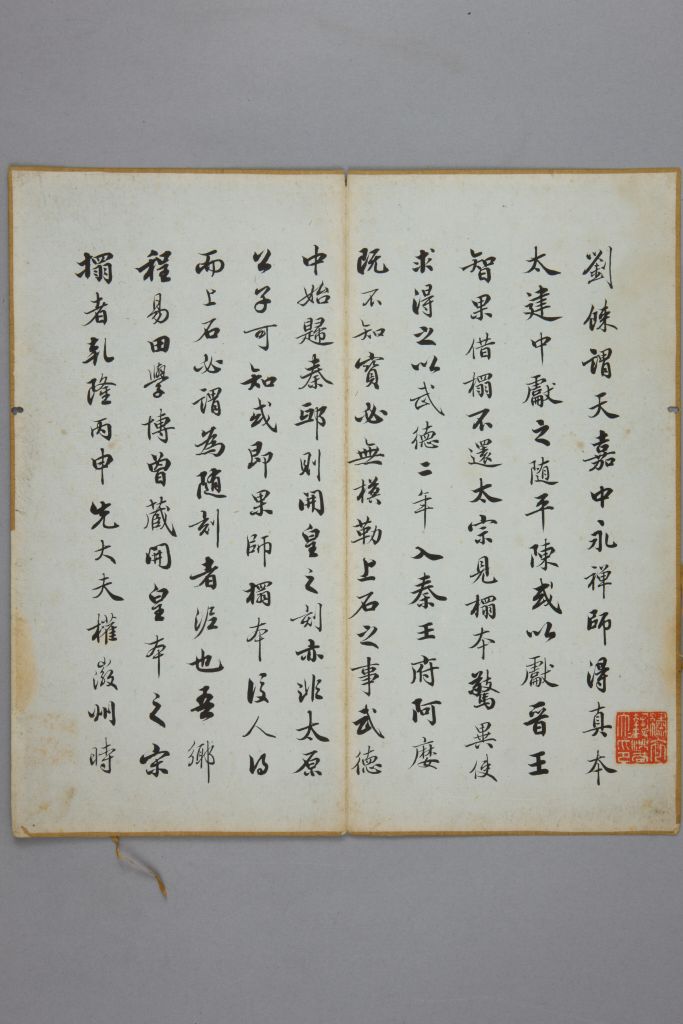 劉餗謂天嘉中永禪師得真本
太建中獻之隨平陳或以獻晉王
智果借搨不還太宗見搨本驚異使
求得之以武德二年入秦王府阿㜷
既不知寶必無橅勒上石之事武德
中始歸秦邸則開皇之刻亦非太原
公子可知或即果師搨本後人得
而上石必謂為隨刻者泥也吾鄉
程易田學博曾藏開皇本之宗
搨者乾隆丙申先大夫權歙州時